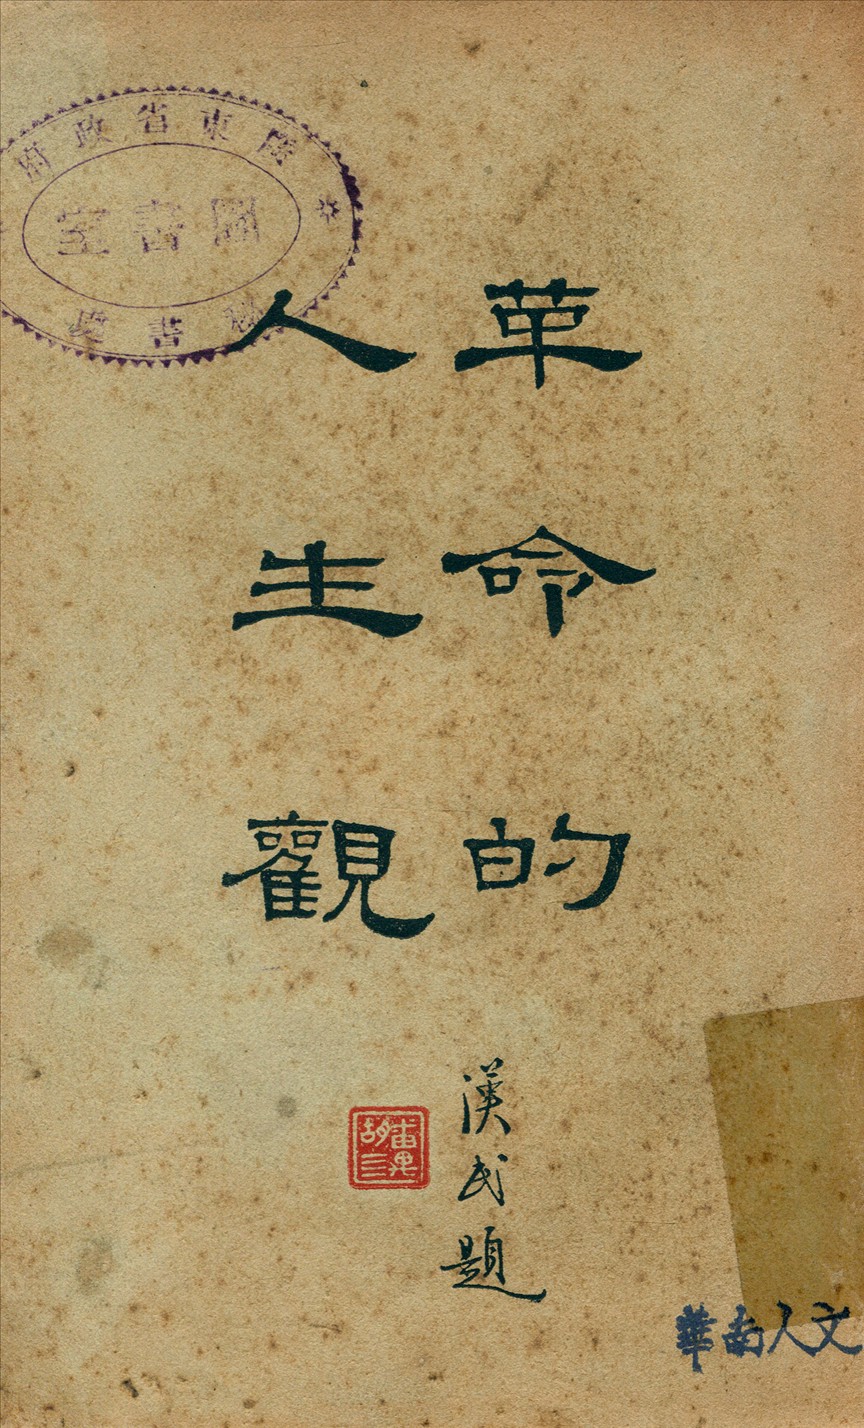 革命的
人生觀
漢民題
廣東省政府
圖書室
秘書處
華南人文